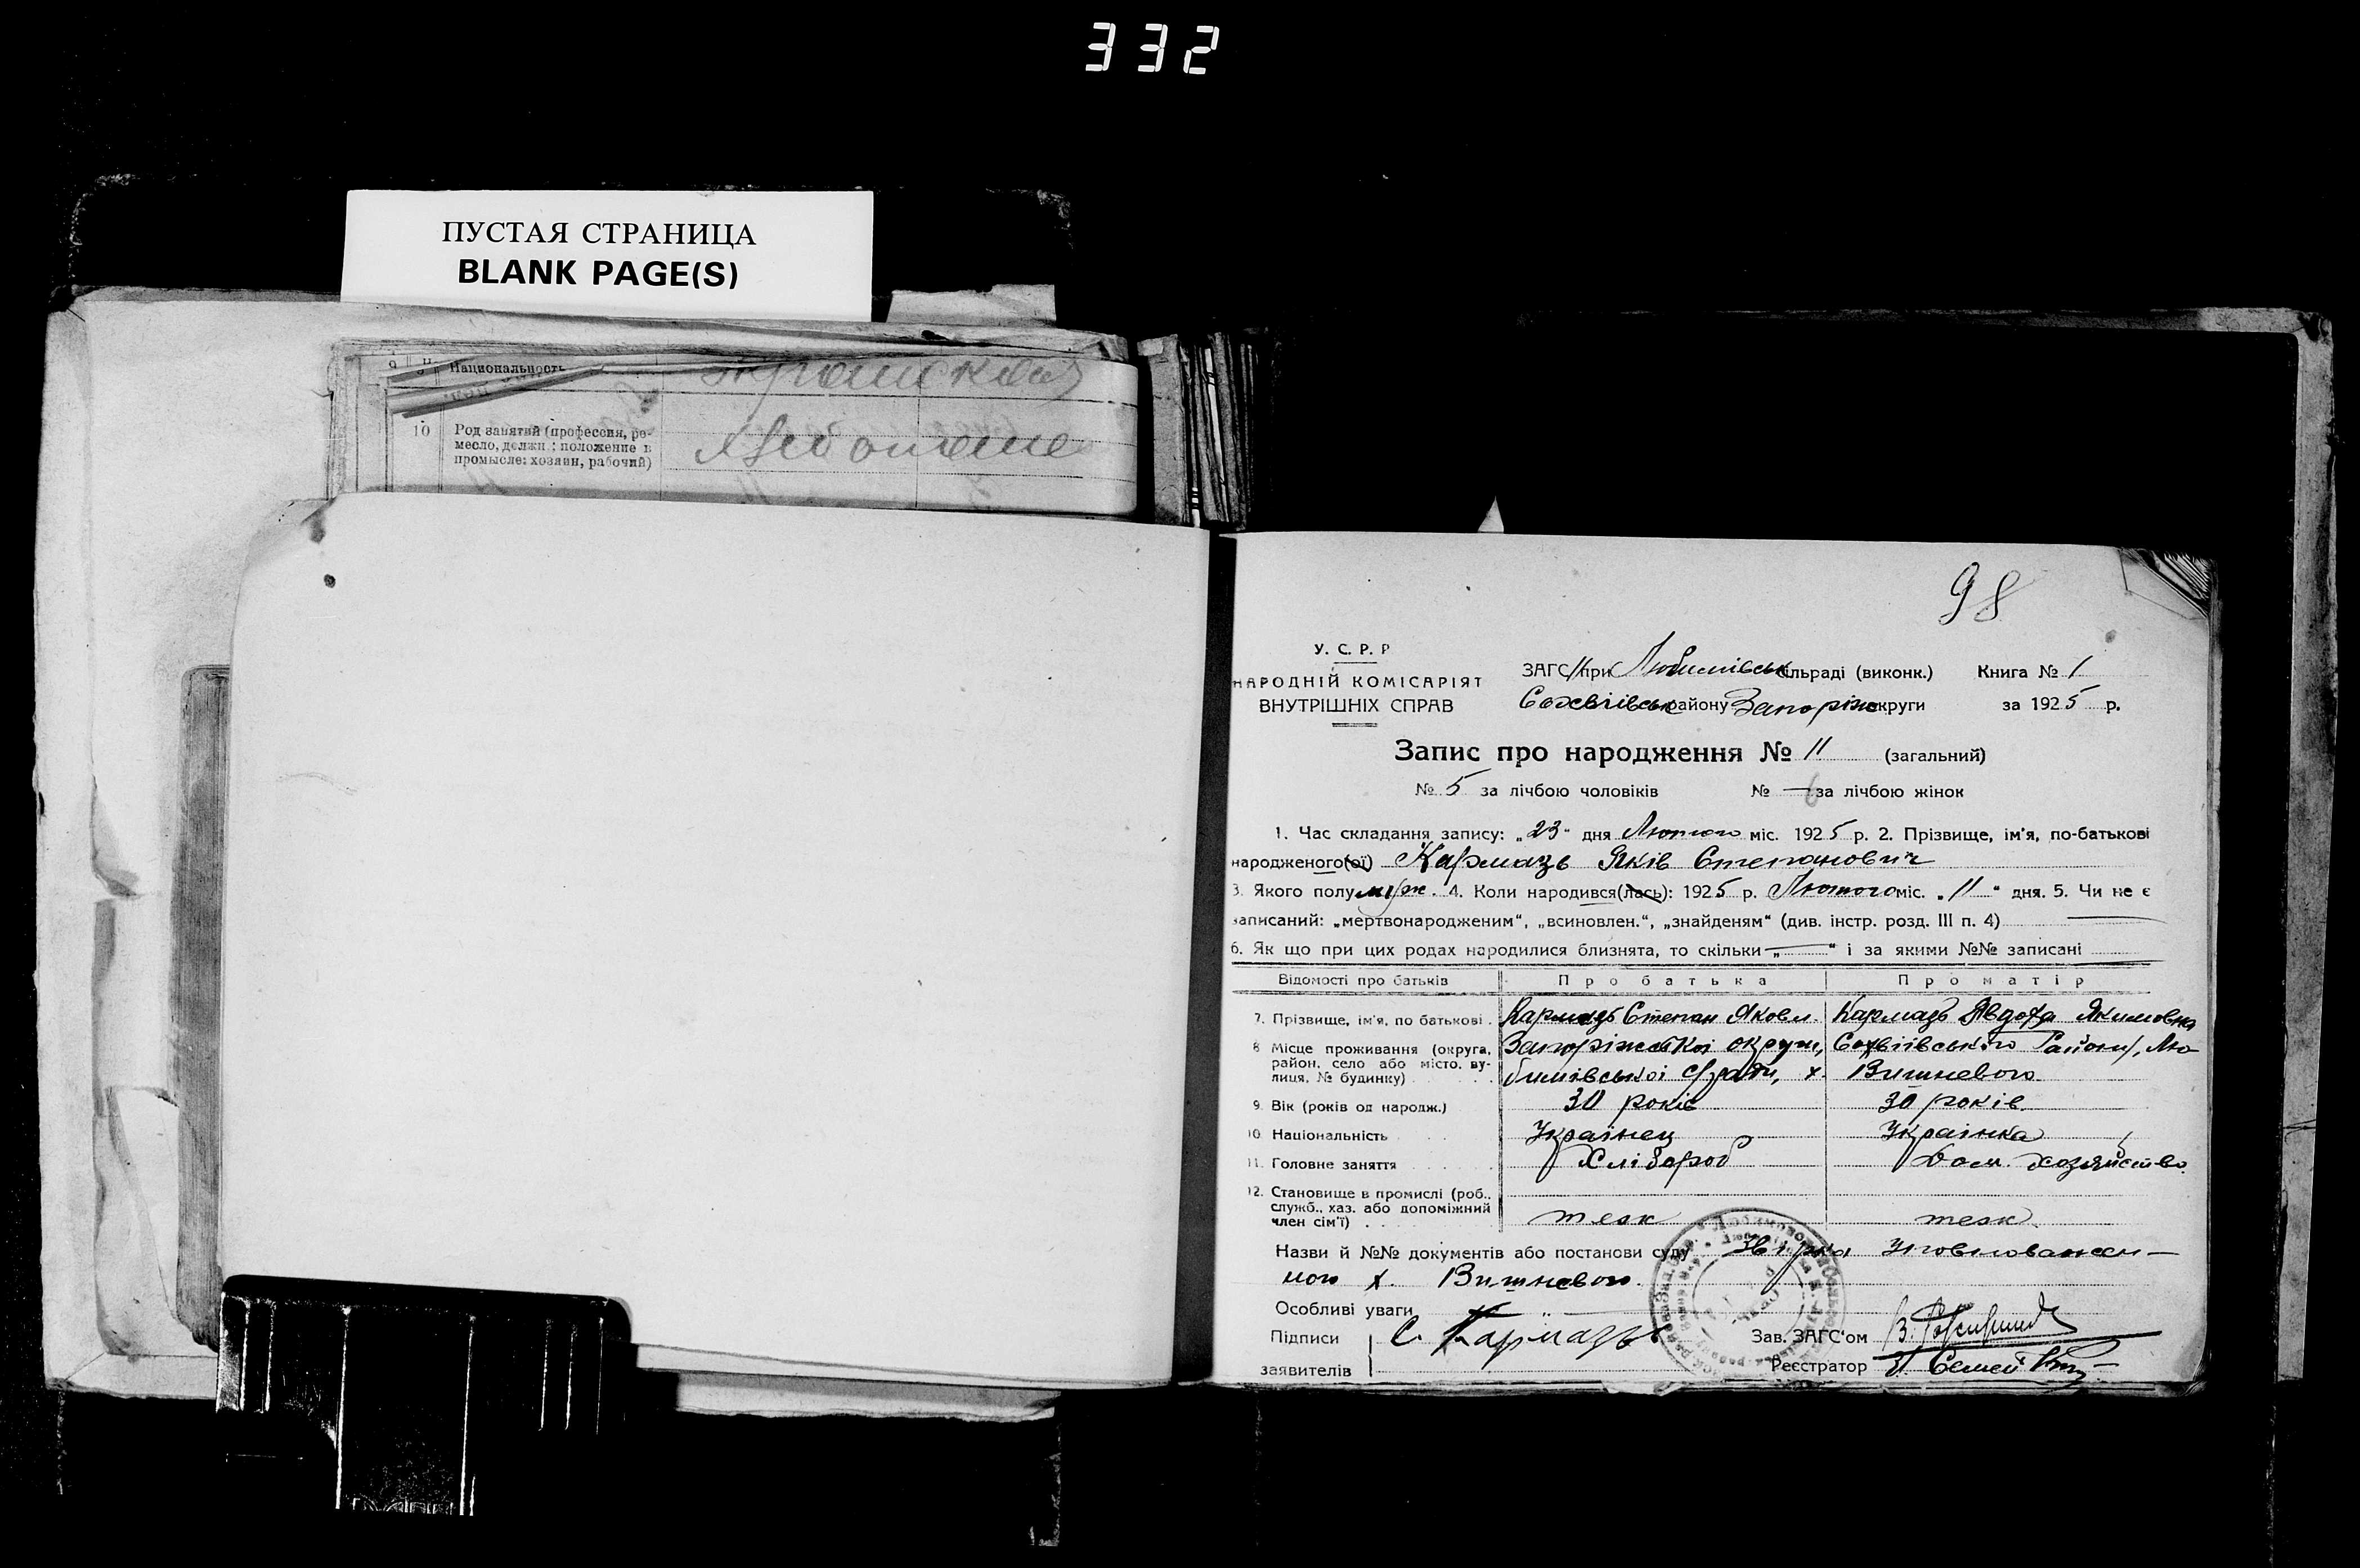 332
ПУСТАЯ СТРАНИЦА
BLANK PAGE(S)
Национальность
10 Род занятий (профессия, ре-
месло, должн.; положение в
промысле: хозяин, рабочий)
98
У. С. Р. Р
НАРОДНІЙ КОМІСАРІЯТ
ВНУТРІШНІХ СПРАВ
ЗАГС при Любимівськ сільраді (виконк.) Книга № 1
району Запоріж округи за 1925 р.
Запис про народження № 11 (загальний)
№ 5 за лічбою чоловіків № — за лічбою жінок
1. Час складання запису: „23" дня Лютого міс. 1925 р. 2. Прізвище, ім'я, по-батькові
народженого(ої) Кармазь Яків Степанович
3. Якого полу муж. 4. Коли народився(лась): 1925 р. Лютого міс. „11" дня. 5. Чи не є
записаний: „мертвонародженим", „всиновлен.", „знайденям" (див. інстр. розд. III п. 4)
6. Як що при цих родах народилися близнята, то скільки „—" і за якими №№ записані
Відомості про батьків Про батька Про матір
7. Прізвище, ім'я, по батькові Кармазь Степан Яковл. Кармазь Явдоха Якимовна
8 Місце проживання (округа, район, село або місто, ву-
лиця, № будинку) Запоріжської округи, Софіївського Району, Лю-
бимівської с/ради, х. Вишневого
9. Вік (років од народж.) 30 років 30 років
10. Національність Українец Українка
11. Головне заняття Хлібороб Дом. хозяйство
12. Становище в промислі (роб., служб., хаз. або допоміжний
член сім'ї)
Назви й №№ документів або постанови суду Уповноважен-
ного х. Вишневого
Особливі уваги
Підписи С. Кармазь Зав. ЗАГС'ом
заявителів Реєстратор